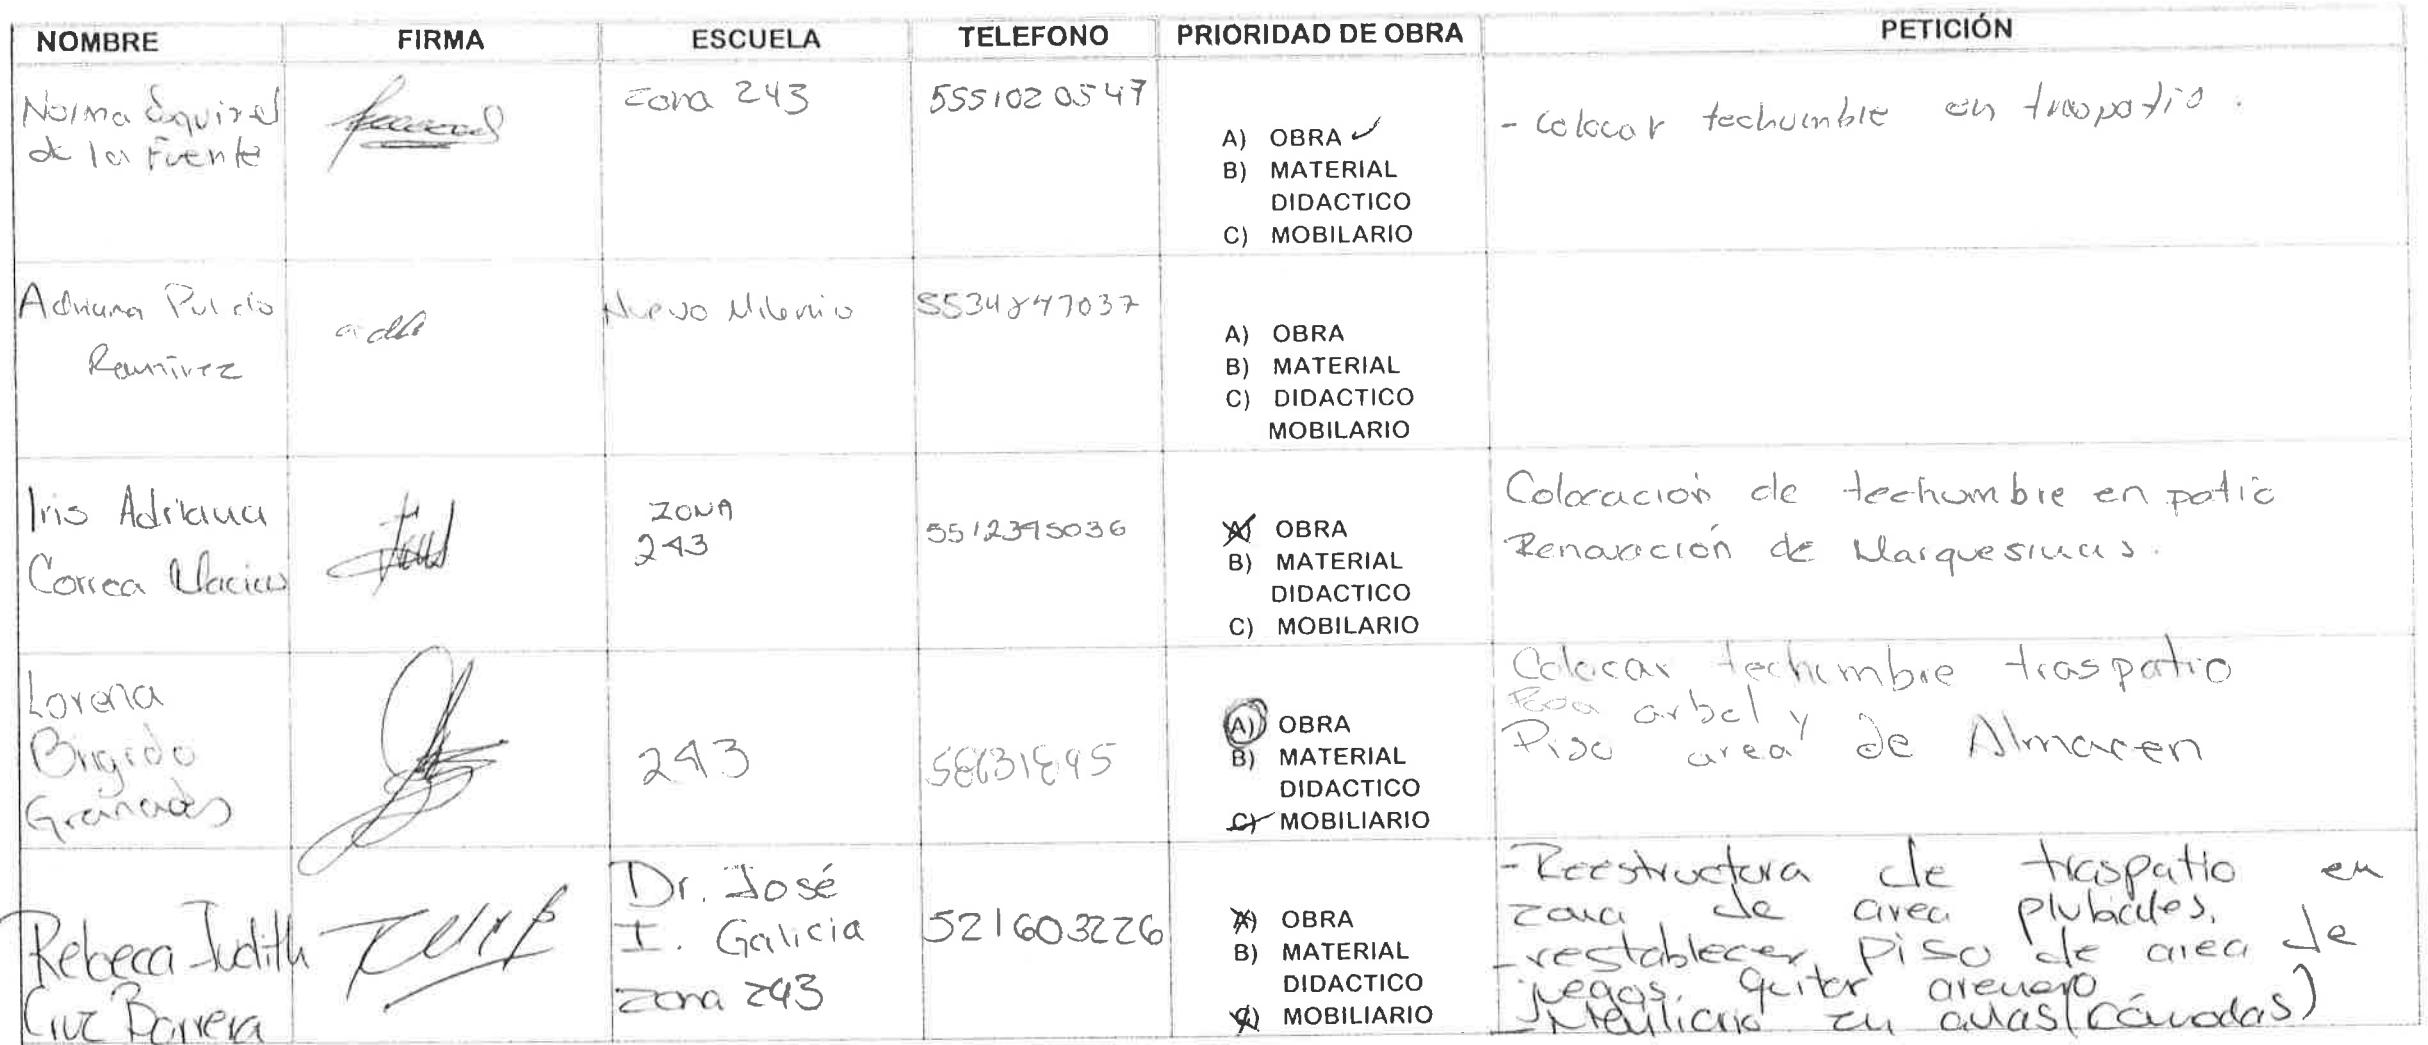 NOMBRE FIRMA ESCUELA TELEFONO PRIORIDAD DE OBRA PETICIÓN
Norma Esquivel
de la Fuente
zona 243
5551020547
A) OBRA
B) MATERIAL
DIDACTICO
C) MOBILARIO
- Colocar techumbre en traspatio.
Adriana Pulido
Ramírez
Nuevo Milenio
5534847037
A) OBRA
B) MATERIAL
C) DIDACTICO
MOBILARIO
Iris Adriana
Correa Macias
ZONA
243
5512395036
A) OBRA
B) MATERIAL
DIDACTICO
C) MOBILARIO
Colocación de techumbre en patio
Renovación de Marquesinas.
Lorena
Brigido
Granados
243
A) OBRA
B) MATERIAL
DIDACTICO
C) MOBILIARIO
Colocar techumbre traspatio
y
Piso area de Almacen
Rebeca Judith
Cruz Barrera
Dr. José
I. Galicia
zona 243
521603226
A) OBRA
B) MATERIAL
DIDACTICO
C) MOBILIARIO
- Reestructura de traspatio en
zona de area
- restablecer piso de area de
juegos, quitar arenero